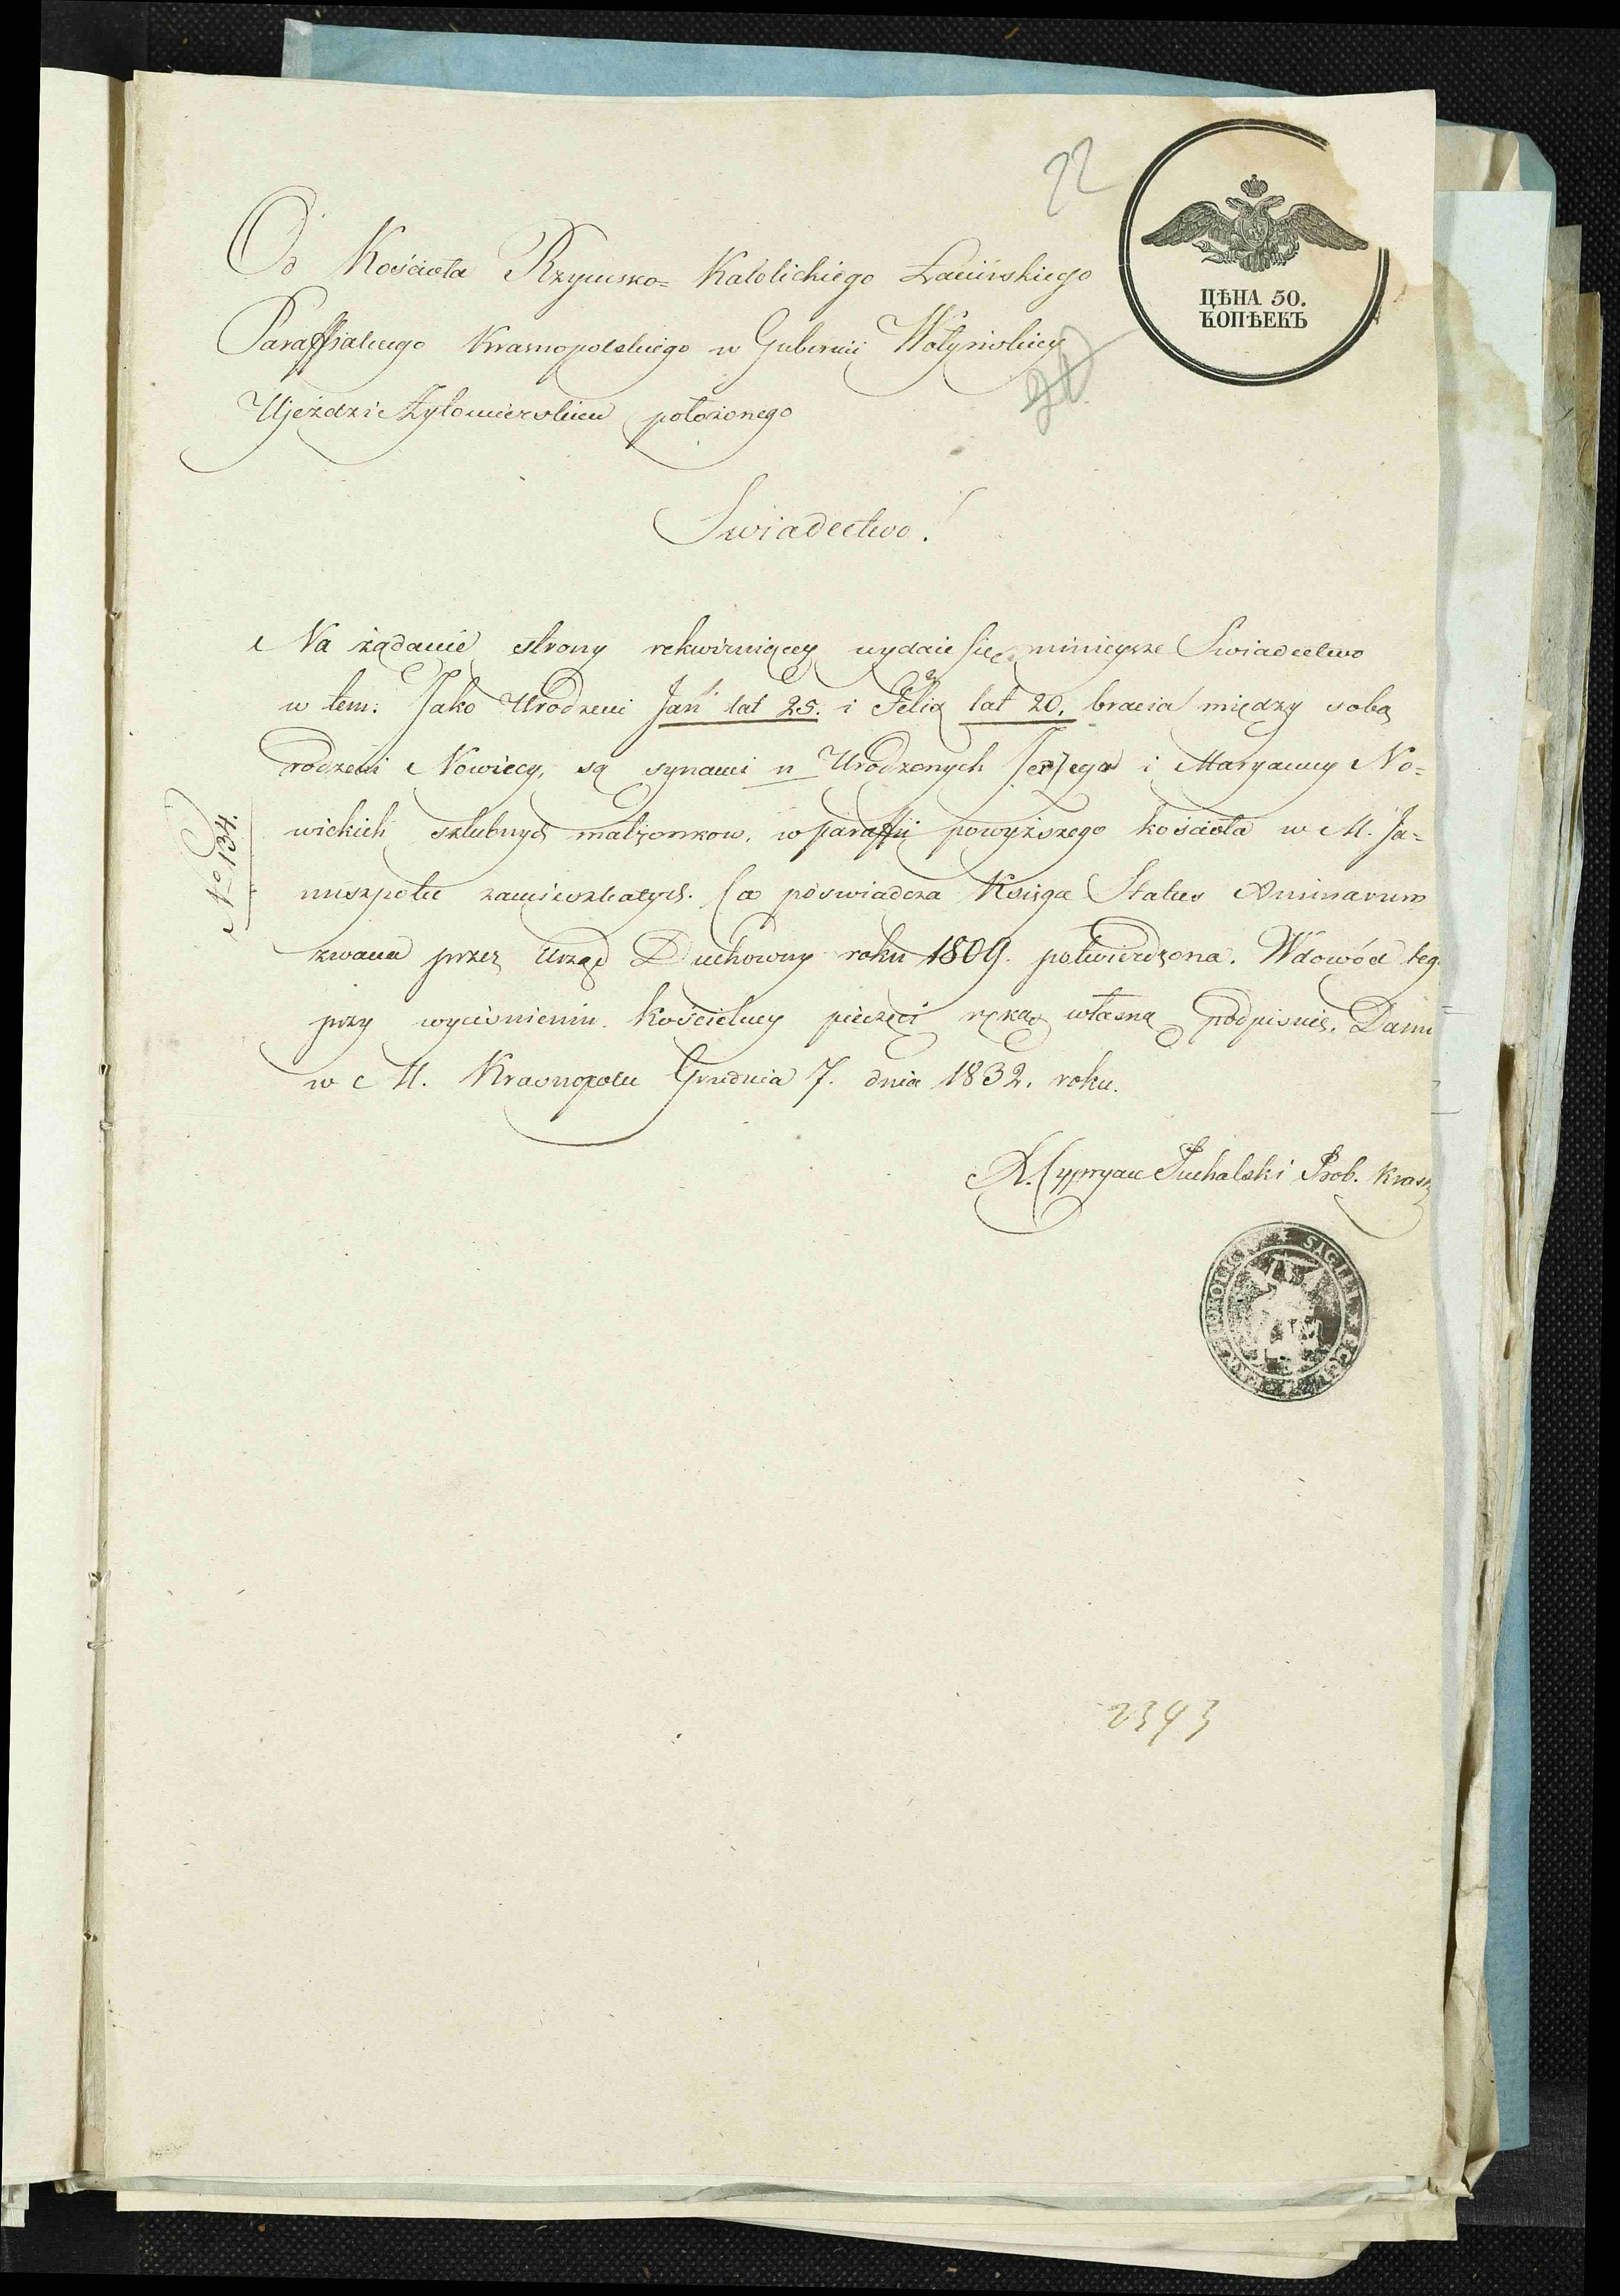 22
ЦѢНА 50.
КОПѢЕКЪ
Od Kościoła Rzymsko= Katolickiego Łacińskiego
Paraffialnego Krasnopolskiego w Gubernii Wołyńskiey
Ujeździe Żytomierskim położonego
Swiadectwo!
Na żądanie strony rekwiruiącey wydaie się ninieysze Swiadectwo
w tem: Jako Urodzeni Jan lat 25. i Felix lat 20. bracia między sobą
rodzeni Nowiccy, są synami n Urodzonych Jozefa i Maryanny No=
wickich szlubnych małżonkow, w paraffii powyższego kościoła w M. Ja=
nuszpolu zamieszkałych. Co poswiadcza Księga Status Animarum
zwana przez Urząd Duchowny roku 1809. potwierdzona. W dowód teg
przy wyciśnieniu kościelney pieczęci ręką własną podpisuię. Dann
w M. Krasnopolu Grudnia 7. dnia 1832. roku.
X. Cypryan Puchalski Prob. Kras
No 134.
SIGILL
2393